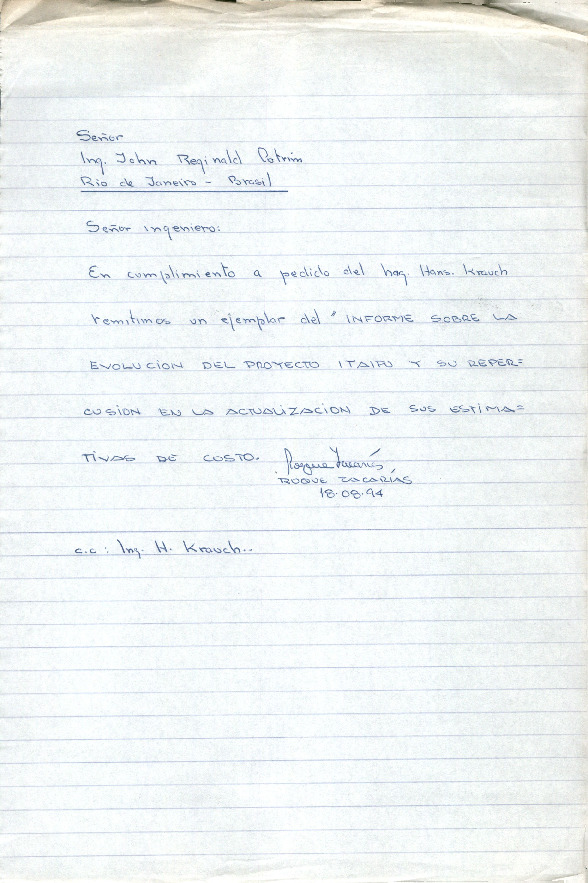 Señor
Ing. John Reginald Cotrim
Rio de Janeiro - Brasil
Señor ingeniero:
En cumplimiento a pedido del Ing. Hans. Krauch
remitimos un ejemplar del "INFORME SOBRE LA
EVOLUCION DEL PROYECTO ITAIPU Y SU REPER=
CUSION EN LA ACTUALIZACION DE SUS ESTIMA=
TIVAS DE COSTO.
Roque Zacarías
ROQUE ZACARÍAS
18.08.94
c.c: Ing. H. Krauch..